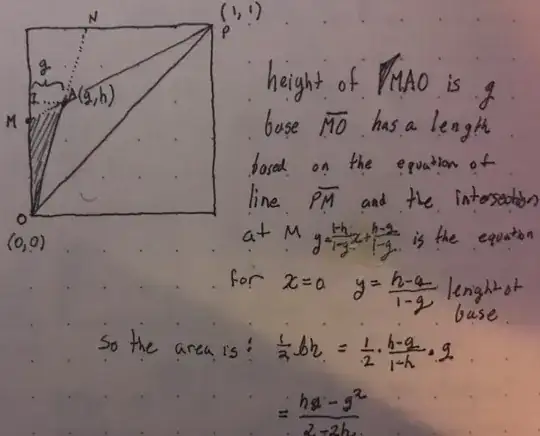 (1, 1)
N
P
g
A(g,h)
M
O
(0,0)
height of MAO is g
base MO has a length
based on the equation of
line PM and the intersection
at M y=\frac{1-h}{1-g}x+\frac{h-g}{1-g} is the equation
for x=0 y=\frac{h-g}{1-g} lenght of
base
So the area is: \frac{1}{2} bh = \frac{1}{2}·\frac{h-g}{1-h}·g
= \frac{hg-g^2}{2-2h}